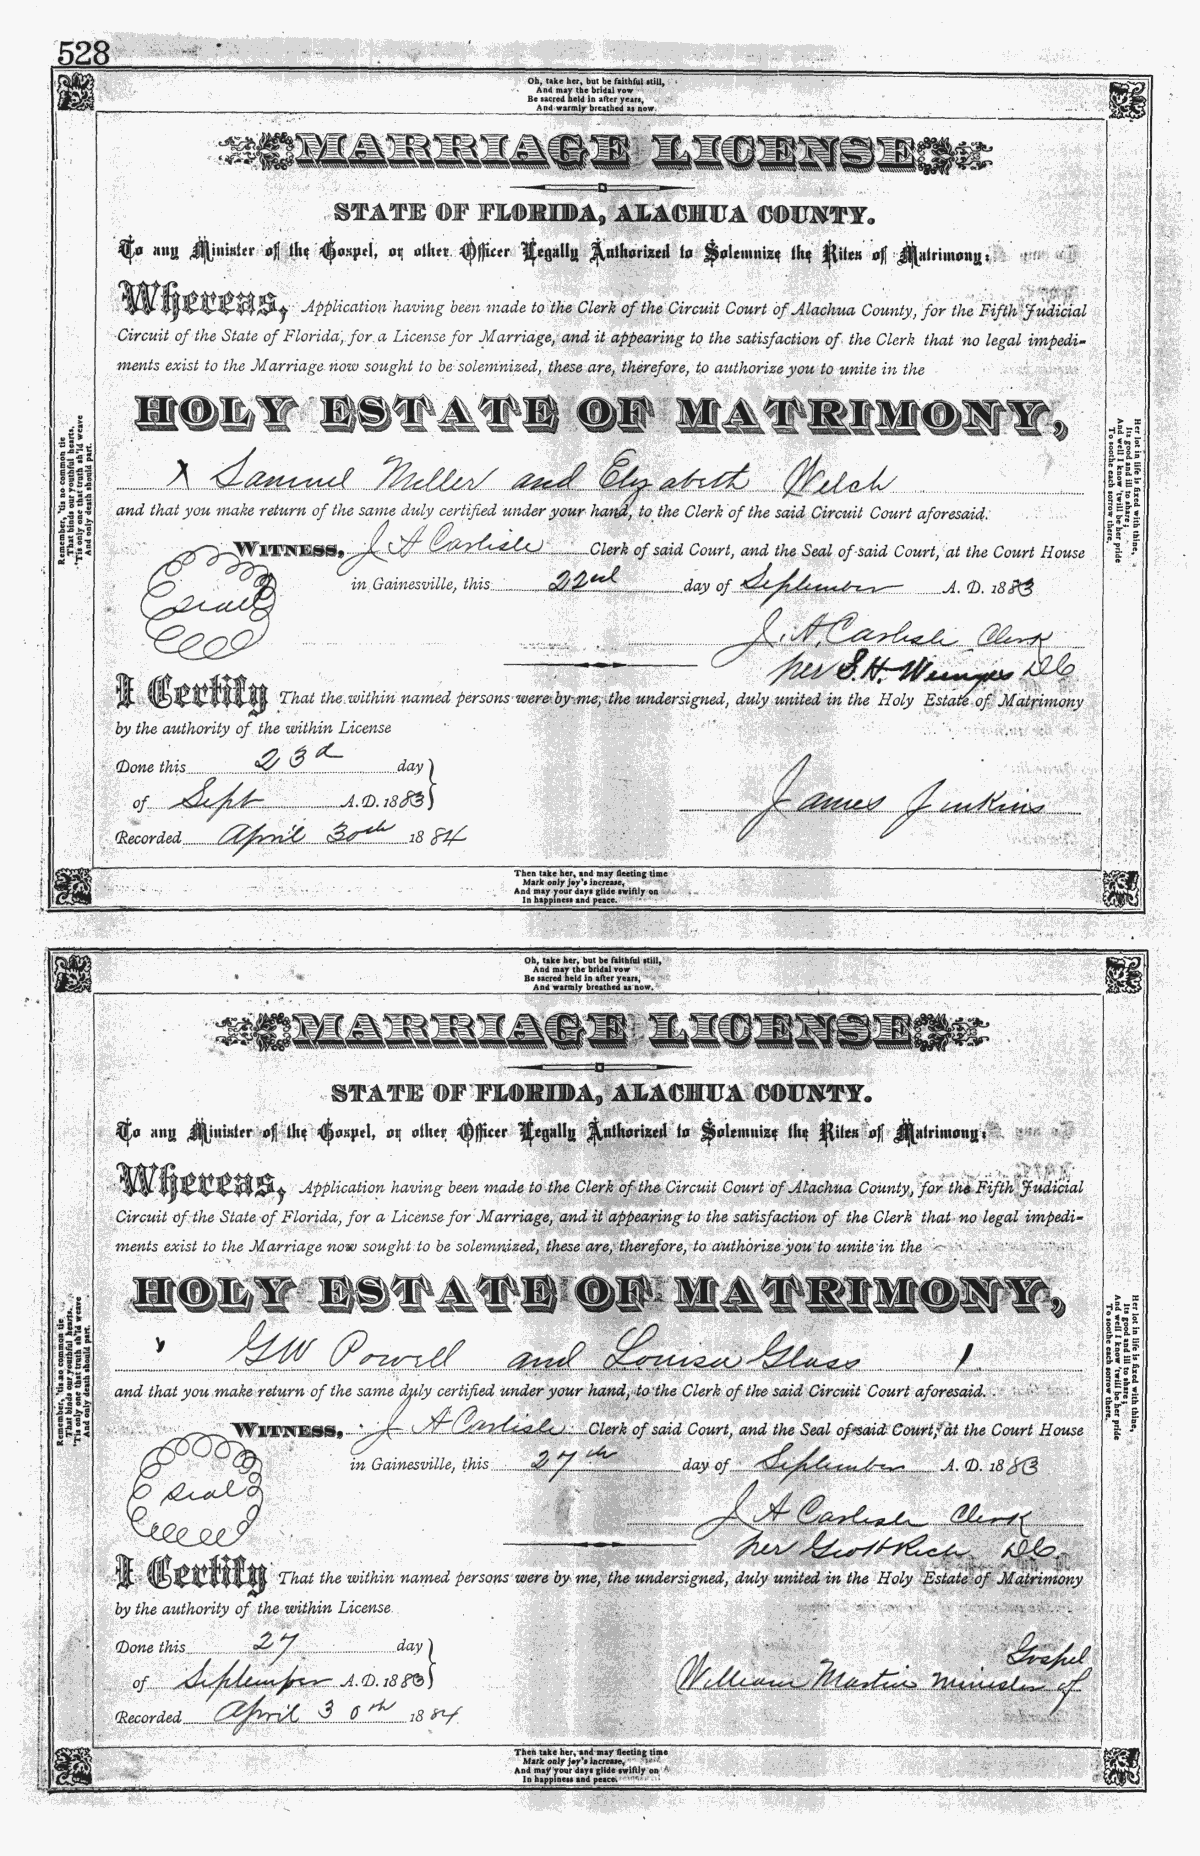 528
Oh, take her, but be faithful still,
And may the bridal vow
Be sacred held in after years,
And warmly breathed as now.
MARRIAGE LICENSE
STATE OF FLORIDA, ALACHUA COUNTY.
To any Minister of the Gospel, or other Officer Legally Authorized to Solemnize the Rites of Matrimony:
Whereas, Application having been made to the Clerk of the Circuit Court of Alachua County, for the Fifth Judicial
Circuit of the State of Florida, for a License for Marriage, and it appearing to the satisfaction of the Clerk that no legal impedi-
ments exist to the Marriage now sought to be solemnized, these are, therefore, to authorize you to unite in the
HOLY ESTATE OF MATRIMONY,
X Samuel Miller and Elizabeth Welch
and that you make return of the same duly certified under your hand, to the Clerk of the said Circuit Court aforesaid.
WITNESS, J A Carlisle Clerk of said Court, and the Seal of said Court, at the Court House
in Gainesville, this 22nd day of September A. D. 1883
Seal
J. A. Carlisle Clerk
per S. H. DC
I Certify That the within named persons were by me, the undersigned, duly united in the Holy Estate of Matrimony
by the authority of the within License
Done this 23d day
of Sept A.D. 1883
James Jinkins
Recorded April 30th 1884
Remember, 'tis no common tie
That binds our youthful hearts,
'Tis only one that truth sh'ld weave
And only death should part.
Her lot in life is fixed with thine,
Its good and ill to share;
And well I know 'twill be her pride
To soothe each sorrow there.
Then take her, and may fleeting time
Mark only joy's increase,
And may your days glide swiftly on
In happiness and peace.
Oh, take her, but be faithful still,
And may the bridal vow
Be sacred held in after years,
And warmly breathed as now.
MARRIAGE LICENSE
STATE OF FLORIDA, ALACHUA COUNTY.
To any Minister of the Gospel, or other Officer Legally Authorized to Solemnize the Rites of Matrimony:
Whereas, Application having been made to the Clerk of the Circuit Court of Alachua County, for the Fifth Judicial
Circuit of the State of Florida, for a License for Marriage, and it appearing to the satisfaction of the Clerk that no legal impedi-
ments exist to the Marriage now sought to be solemnized, these are, therefore, to authorize you to unite in the
HOLY ESTATE OF MATRIMONY,
GW Powell and Louisa Glass
and that you make return of the same duly certified under your hand, to the Clerk of the said Circuit Court aforesaid.
WITNESS, J A Carlisle Clerk of said Court, and the Seal of said Court, at the Court House
in Gainesville, this 27th day of September A. D. 1883
Seal
J A Carlisle Clerk
per Geo H Rich DC
I Certify That the within named persons were by me, the undersigned, duly united in the Holy Estate of Matrimony
by the authority of the within License
Done this 27 day
of September A.D. 1883
William Martin Minister of Gospel
Recorded April 30th 1884
Remember, 'tis no common tie
That binds our youthful hearts,
'Tis only one that truth sh'ld weave
And only death should part.
Her lot in life is fixed with thine,
Its good and ill to share;
And well I know 'twill be her pride
To soothe each sorrow there.
Then take her, and may fleeting time
Mark only joy's increase,
And may your days glide swiftly on
In happiness and peace.